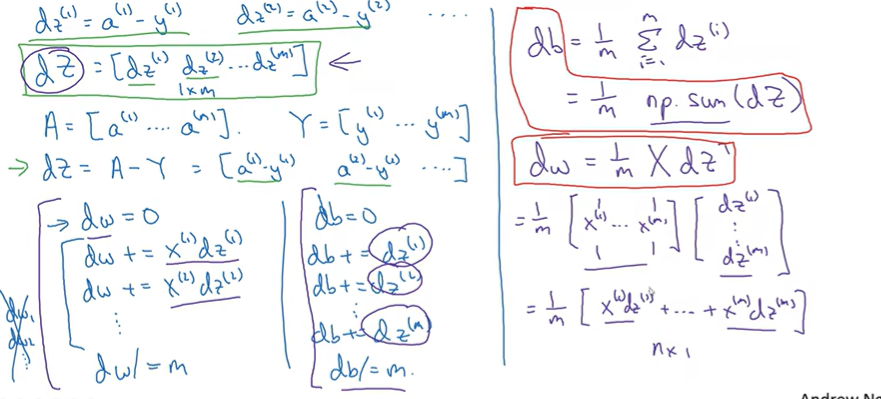 dz⁽¹⁾ = a⁽¹⁾ - y⁽¹⁾   dz⁽²⁾ = a⁽²⁾ - y⁽²⁾ ....
dZ = [dz⁽¹⁾ dz⁽²⁾ ... dz⁽ᵐ⁾] ←
1×m
A = [a⁽¹⁾ .... a⁽ᵐ⁾].   Y = [y⁽¹⁾ ... y⁽ᵐ⁾]
→ dZ = A - Y = [a⁽¹⁾-y⁽¹⁾   a⁽²⁾-y⁽²⁾ ....]
→ dw = 0
dw += x⁽¹⁾dz⁽¹⁾
dw += x⁽²⁾dz⁽²⁾
⋮
dw /= m
dw₁
dw₂
⋮
db = 0
db += dz⁽¹⁾
db += dz⁽²⁾
⋮
db += dz⁽ᵐ⁾
db /= m.
db = 1/m Σᵢ₌₁ᵐ dz⁽ⁱ⁾
= 1/m np.sum(dZ)
dw = 1/m X dzᵀ
= 1/m [x⁽¹⁾ ... x⁽ᵐ⁾] [dz⁽¹⁾ ⋮ dz⁽ᵐ⁾]
= 1/m [x⁽¹⁾dz⁽¹⁾ + ... + x⁽ᵐ⁾dz⁽ᵐ⁾]
n×1
Andrew